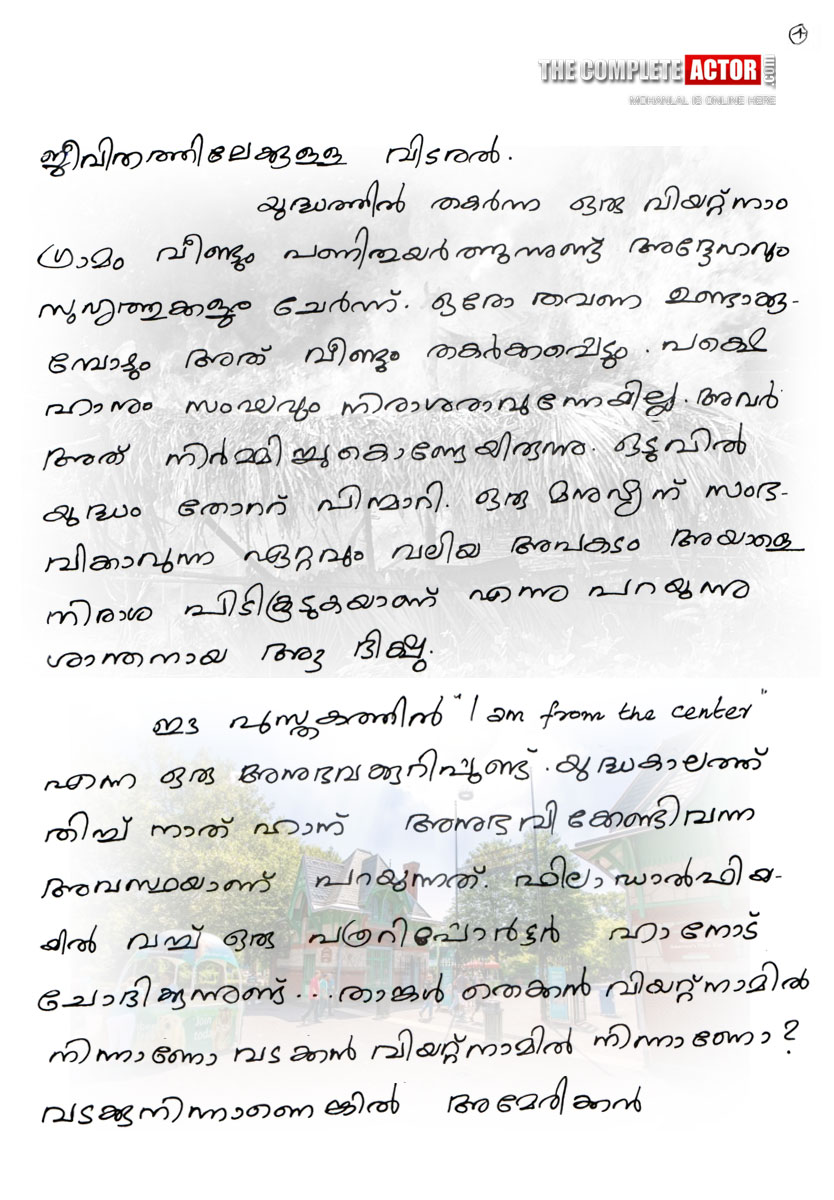 1
THE COMPLETE ACTOR .COM
MOHANLAL IS ONLINE HERE
ജീവിതത്തിലേക്കുള്ള വിടരൽ.
യുദ്ധത്തിൽ തകർന്ന ഒരു വിയറ്റ്നാം
ഗ്രാമം വീണ്ടും പണിതുയർത്തുന്നുണ്ട് അദ്ദേഹവും
സുഹൃത്തുക്കളും ചേർന്ന്. ഒരോ തവണ ഉണ്ടാക്കു-
മ്പോഴും അത് വീണ്ടും തകർക്കപ്പെട്ടും. പക്ഷെ
ഹാനും സംഘവും നിരാശരാവുന്നേയില്ല. അവർ
അത് നിർമ്മിച്ചുകൊണ്ടേയിരുന്നു. ഒടുവിൽ
യുദ്ധം തോറ്റ് പിന്മാറി. ഒരു മനുഷ്യന് സംഭ-
വിക്കാവുന്ന ഏറ്റവും വലിയ അപകടം അയാളെ
നിരാശ പിടികൂടുകയാണ് എന്നു പറയുന്നു
ശാന്തനായ ആ ഭിക്ഷു.
ഈ പുസ്തകത്തിൽ "I am from the center"
എന്ന ഒരു അനുഭവക്കുറിപ്പുണ്ട്. യുദ്ധകാലത്ത്
തിച്ച് നാത് ഹാന് അനുഭവിക്കേണ്ടിവന്ന
അവസ്ഥയാണ് പറയുന്നത്. ഫിലാഡാൽഫിയ-
യിൽ വച്ച് ഒരു പത്രറിപ്പോർട്ടർ ഹാനോട്
ചോദിക്കുന്നുണ്ട്...താങ്കൾ തെക്കൻ വിയറ്റ്നാമിൽ
നിന്നാണോ വടക്കൻ വിയറ്റ്നാമിൽ നിന്നാണോ?
വടക്കുനിന്നാണെങ്കിൽ അമേരിക്കൻ